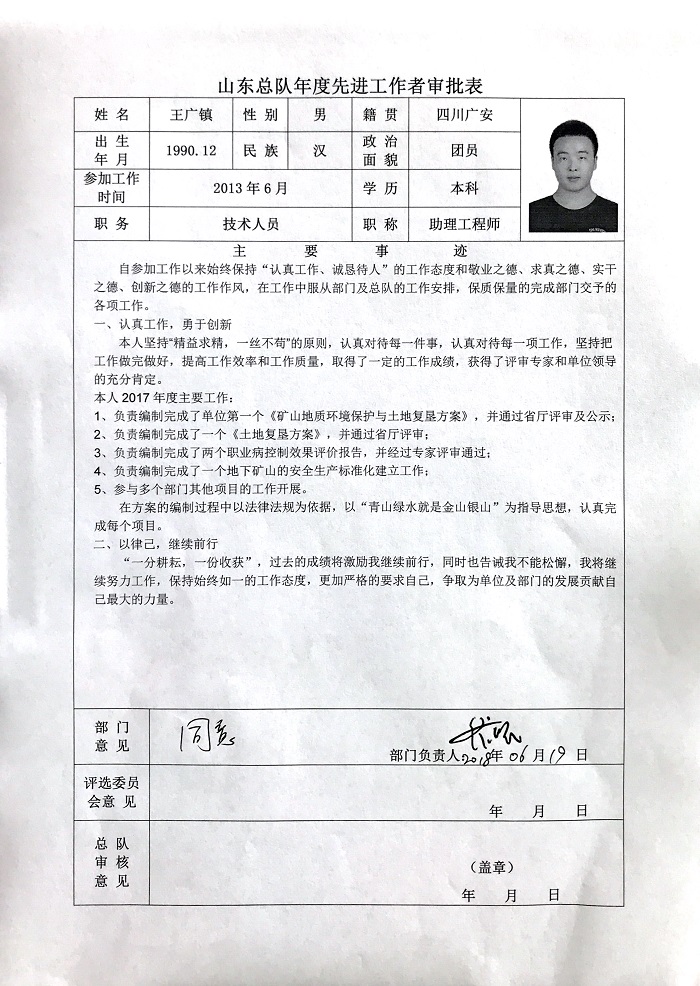 山东总队年度先进工作者审批表
姓 名 王广镇 性 别 男 籍 贯 四川广安
出 生 年 月 1990.12 民 族 汉 政 治 面 貌 团员
参加工作时间 2013 年 6 月 学 历 本科
职 务 技术人员 职 称 助理工程师
主 要 事 迹
自参加工作以来始终保持“认真工作、诚恳待人”的工作态度和敬业之德、求真之德、实干
之德、创新之德的工作作风，在工作中服从部门及总队的工作安排，保质保量的完成部门交予的
各项工作。
一、认真工作，勇于创新
本人坚持“精益求精，一丝不苟”的原则，认真对待每一件事，认真对待每一项工作，坚持把
工作做完做好，提高工作效率和工作质量，取得了一定的工作成绩，获得了评审专家和单位领导
的充分肯定。
本人 2017 年度主要工作：
1、负责编制完成了单位第一个《矿山地质环境保护与土地复垦方案》，并通过省厅评审及公示；
2、负责编制完成了一个《土地复垦方案》，并通过省厅评审；
3、负责编制完成了两个职业病控制效果评价报告，并经过专家评审通过；
4、负责编制完成了一个地下矿山的安全生产标准化建立工作；
5、参与多个部门其他项目的工作开展。
在方案的编制过程中以法律法规为依据，以“青山绿水就是金山银山”为指导思想，认真完
成每个项目。
二、以律己，继续前行
“一分耕耘，一份收获”，过去的成绩将激励我继续前行，同时也告诫我不能松懈，我将继
续努力工作，保持始终如一的工作态度，更加严格的要求自己，争取为单位及部门的发展贡献自
己最大的力量。
部 门 意 见 同意
部门负责人 2018年 06 月 19 日
评选委员会意 见
年 月 日
总 队 审 核 意 见
（盖章）
年 月 日